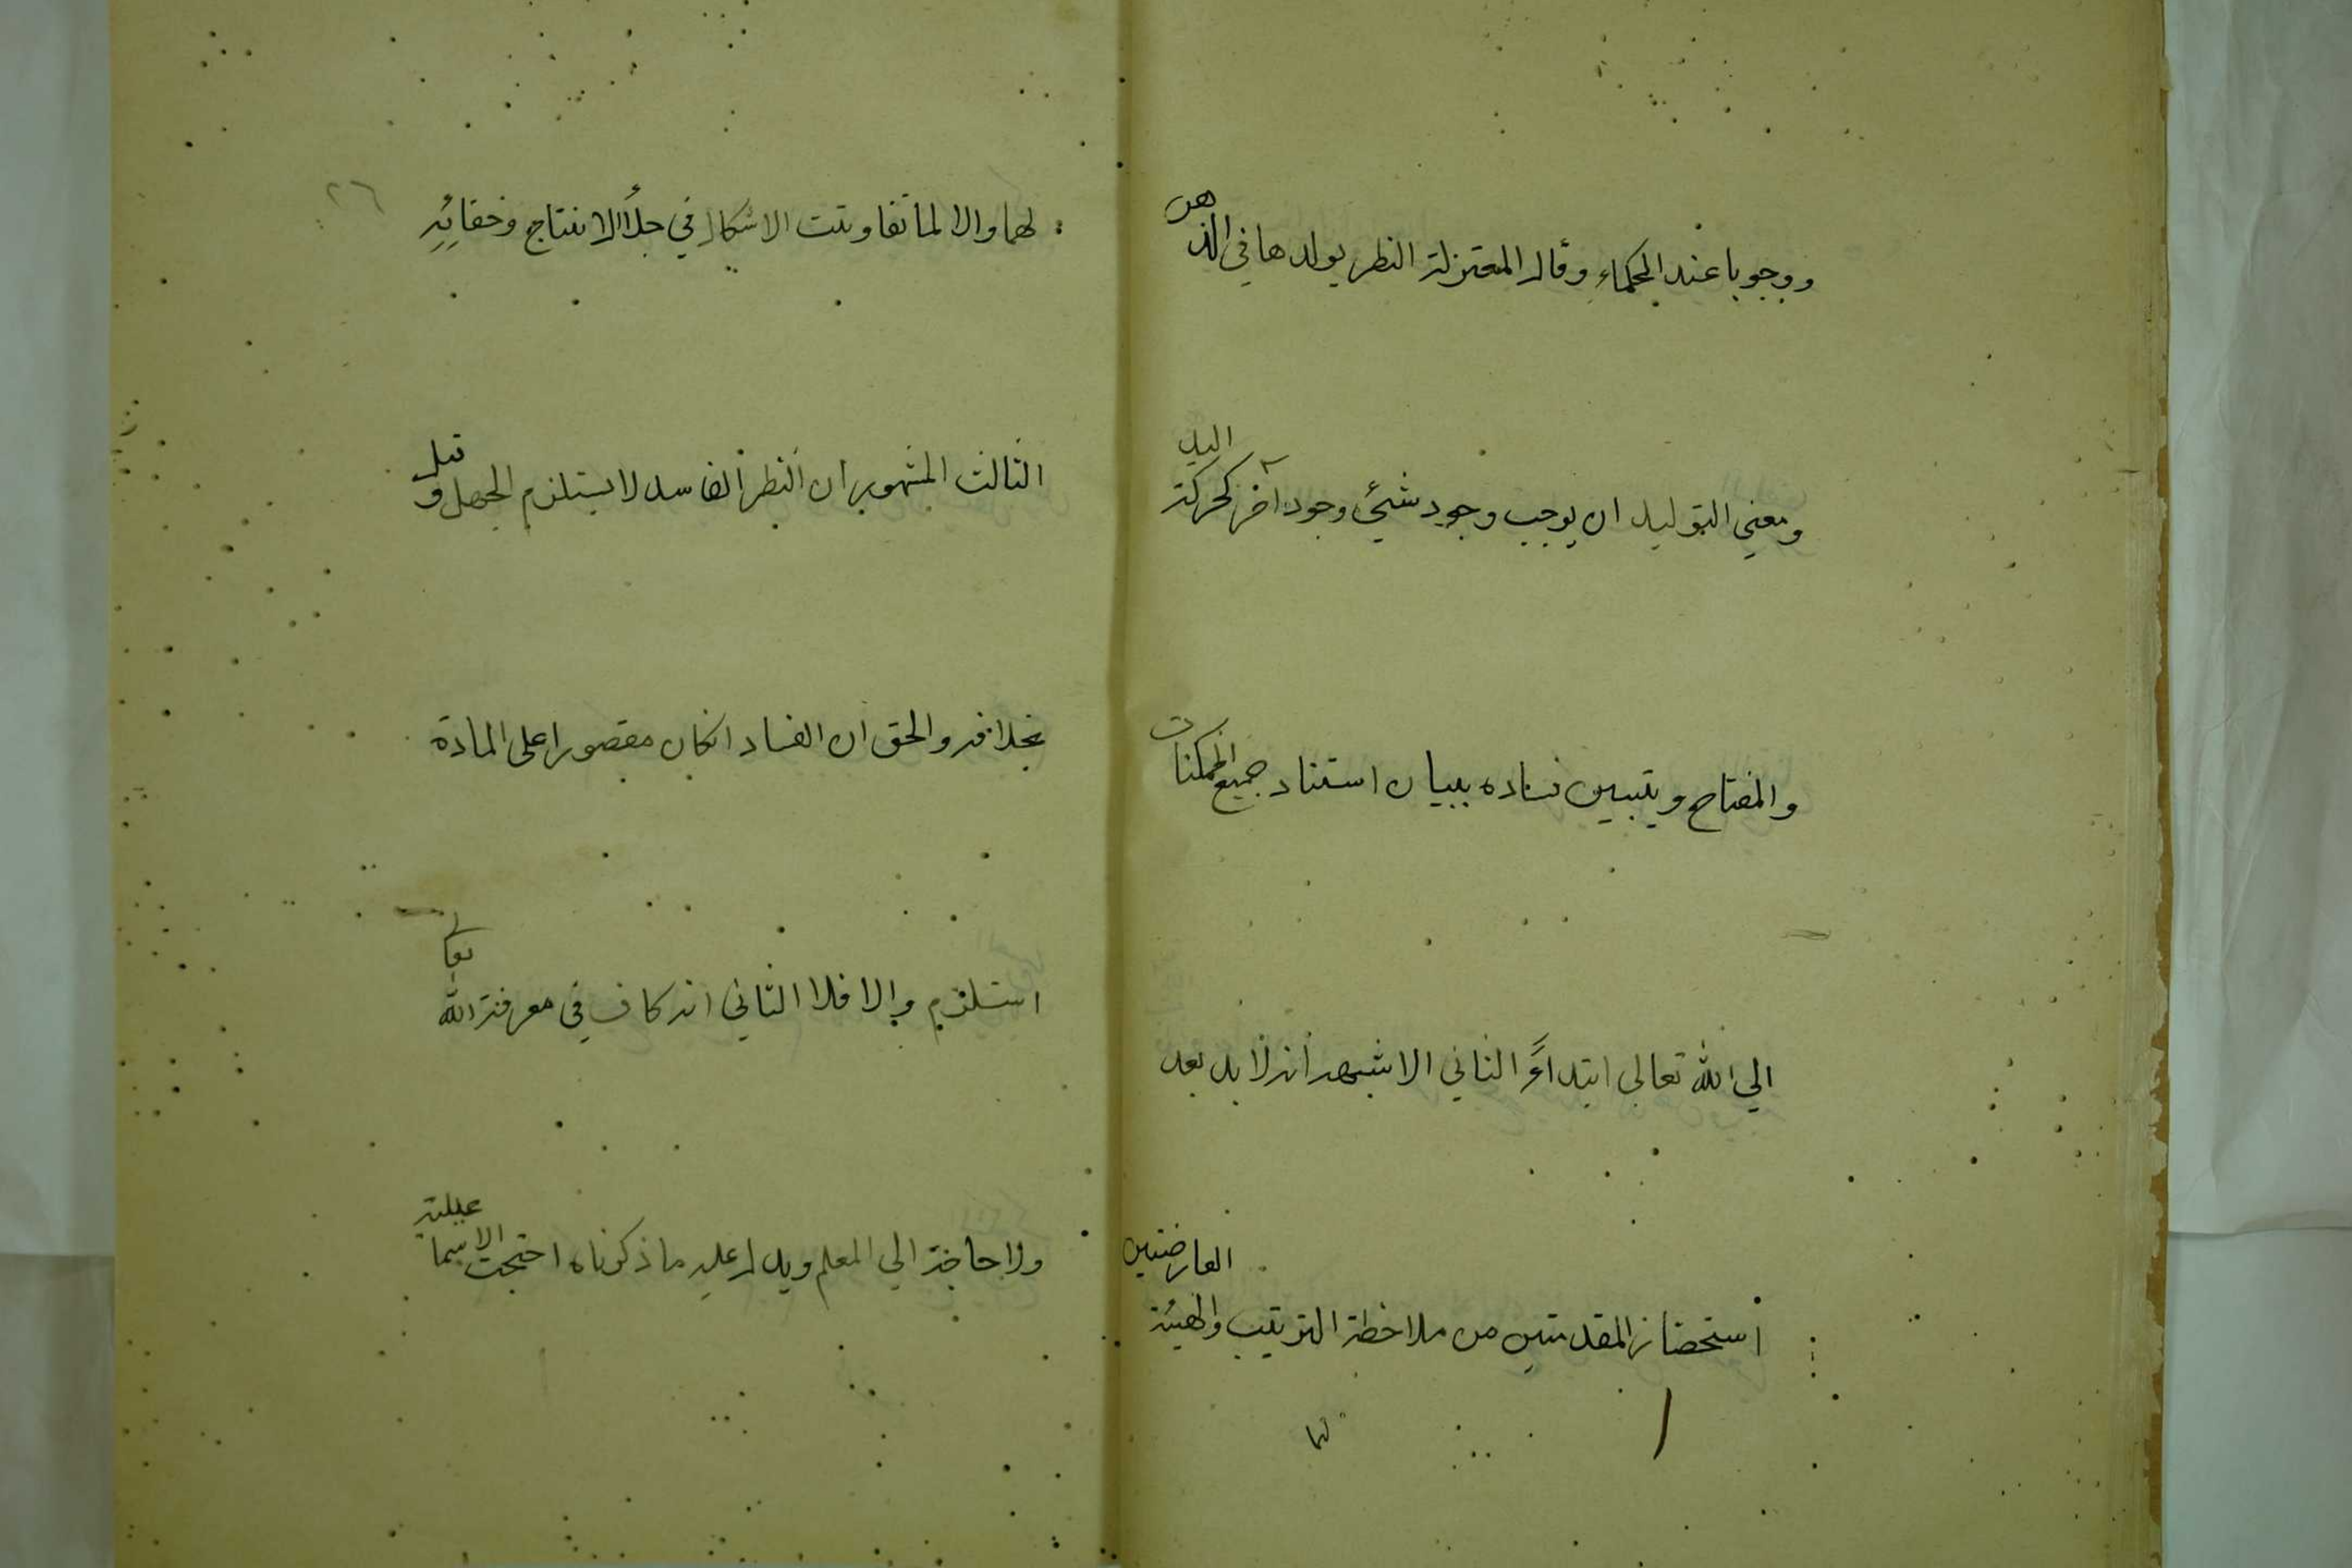 ووجوبا عند الحكماء وقال المعتزلة النظر يولدها في الذهن
ومعني التوليد ان يوجب وجود شيئ وجود آخر كحركة اليد
والمفتاح ويتبين فساده ببيان استناد جميع الممكنات
الي الله تعالي ابتداءً الثاني الاشبهه انه لا بد بعد
استحضار المقدمتين من ملاحظة الترتيب والهيئة العارضتين
لهما
٢٦
لهما والا لما تفاوتت الاشكال في جلأ الانتاج وخفائه
الثالث المشهور ان النظر الفاسد لا يستلزم الجهل وقيل
بخلافه والحق ان الفساد انكان مقصورا على المادة
استلزم والا فلا الثاني انه كاف في معرفة الله تعا
ولا حاجة الي المعلم ويدل عليه ما ذكرناه احتجت الاسماعيلية